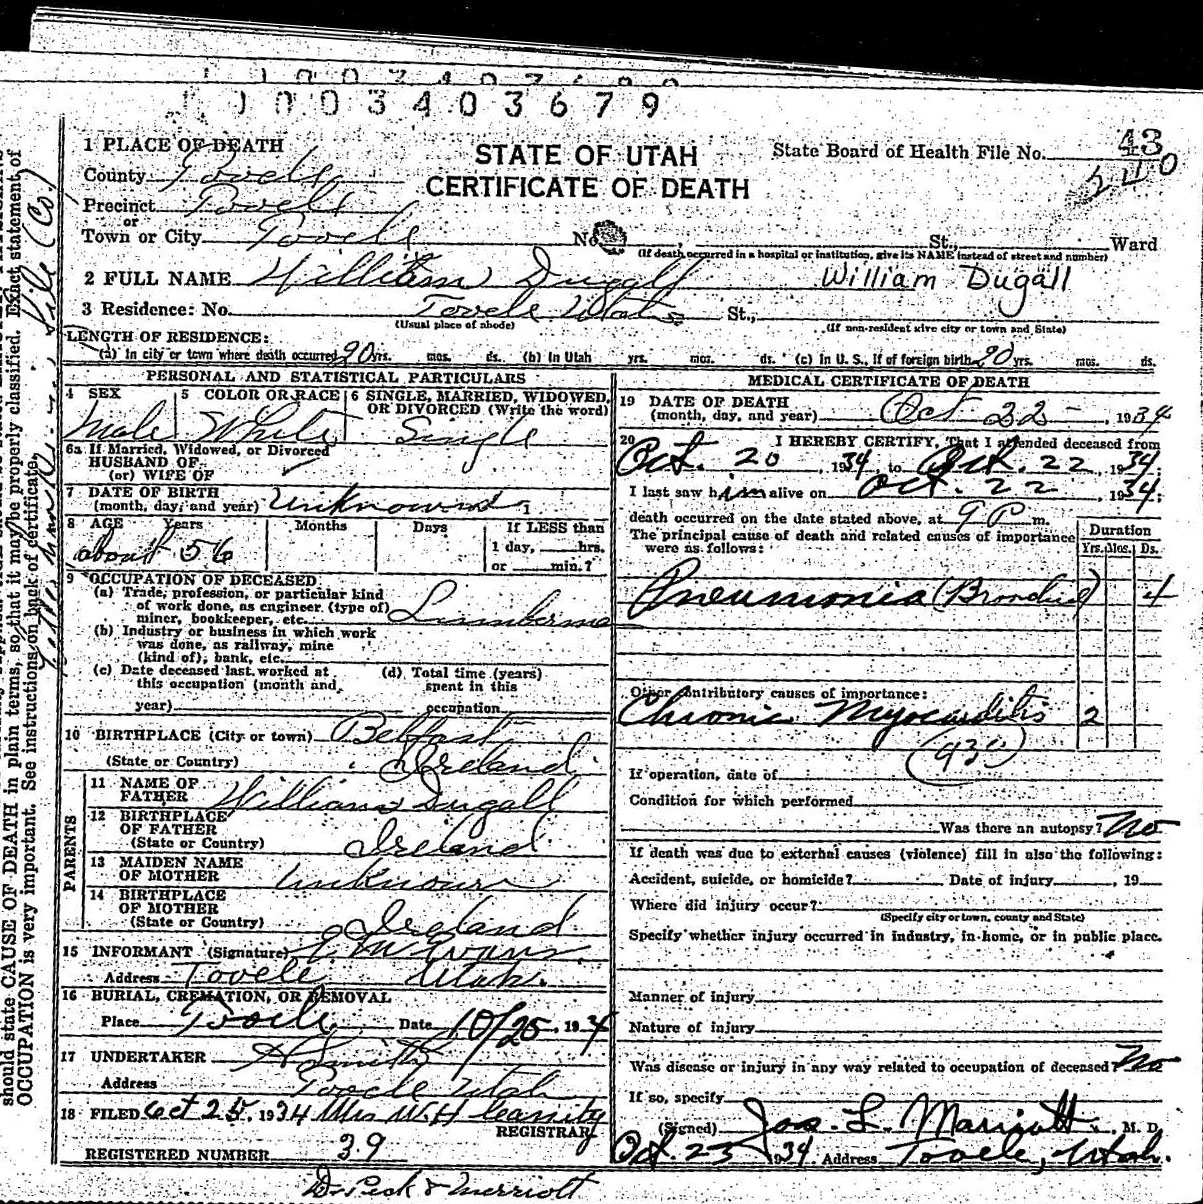 1003403679
1 PLACE OF DEATH
STATE OF UTAH
CERTIFICATE OF DEATH
State Board of Health File No. 43
240
County Tooele
Precinct Tooele
or
Town or City Tooele No. St., Ward
(If death occurred in a hospital or institution, give its NAME instead of street and number)
2 FULL NAME William Dugall William Dugall
3 Residence: No. Tooele Utah St.,
(Usual place of abode) (If non-resident give city or town and State)
LENGTH OF RESIDENCE:
(a) In city or town where death occurred 20 yrs. mos. ds. (b) In Utah yrs. mos. ds. (c) In U. S., if of foreign birth 20 yrs. mos. ds.
PERSONAL AND STATISTICAL PARTICULARS
4 SEX Male
5 COLOR OR RACE White
6 SINGLE, MARRIED, WIDOWED, OR DIVORCED (Write the word) Single
6a If Married, Widowed, or Divorced
HUSBAND OF
(or) WIFE OF
7 DATE OF BIRTH
(month, day, and year) Unknown
8 AGE Years Months Days If LESS than
about 56 1 day, hrs.
or min.?
9 OCCUPATION OF DECEASED
(a) Trade, profession, or particular kind
of work done, as engineer (type of)
miner, bookkeeper, etc. Lumberman
(b) Industry or business in which work
was done, as railway, mine
(kind of), bank, etc.
(c) Date deceased last worked at
this occupation (month and
year)
(d) Total time (years)
spent in this
occupation
10 BIRTHPLACE (City or town) Belfast
(State or Country) Ireland
PARENTS
11 NAME OF
FATHER William Dugall
12 BIRTHPLACE
OF FATHER
(State or Country) Ireland
13 MAIDEN NAME
OF MOTHER Unknown
14 BIRTHPLACE
OF MOTHER
(State or Country) Ireland
15 INFORMANT (Signature) Evans
Address Tooele Utah.
16 BURIAL, CREMATION, OR REMOVAL
Place Tooele Date 10/25, 1934
17 UNDERTAKER Smith
Address Tooele Utah
18 FILED Oct 25, 1934 Mrs W. H.
REGISTRAR
REGISTERED NUMBER 39
Dr Peck & Merriott
MEDICAL CERTIFICATE OF DEATH
19 DATE OF DEATH
(month, day, and year) Oct 22 - 1934
20 I HEREBY CERTIFY, That I attended deceased from
Oct. 20, 1934, to Oct. 22, 1934;
I last saw him alive on Oct. 22, 1934;
death occurred on the date stated above, at 9 P m.
The principal cause of death and related causes of importance
were as follows:
Duration
Yrs. Mos. Ds.
Pneumonia (Bronchial) 4
Other contributory causes of importance:
Chronic Myocarditis 2
(930)
If operation, date of
Condition for which performed
Was there an autopsy? No
If death was due to external causes (violence) fill in also the following:
Accident, suicide, or homicide? Date of injury , 19
Where did injury occur?
(Specify city or town, county and State)
Specify whether injury occurred in industry, in home, or in public place.
Manner of injury
Nature of injury
Was disease or injury in any way related to occupation of deceased? No
If so, specify
(Signed) Jos. L. Marriott, M. D.
Oct. 23 1934 Address Tooele, Utah.
should state CAUSE OF DEATH in plain terms, so that it may be properly classified. Exact statement of
OCCUPATION is very important. See instructions on back of certificate.